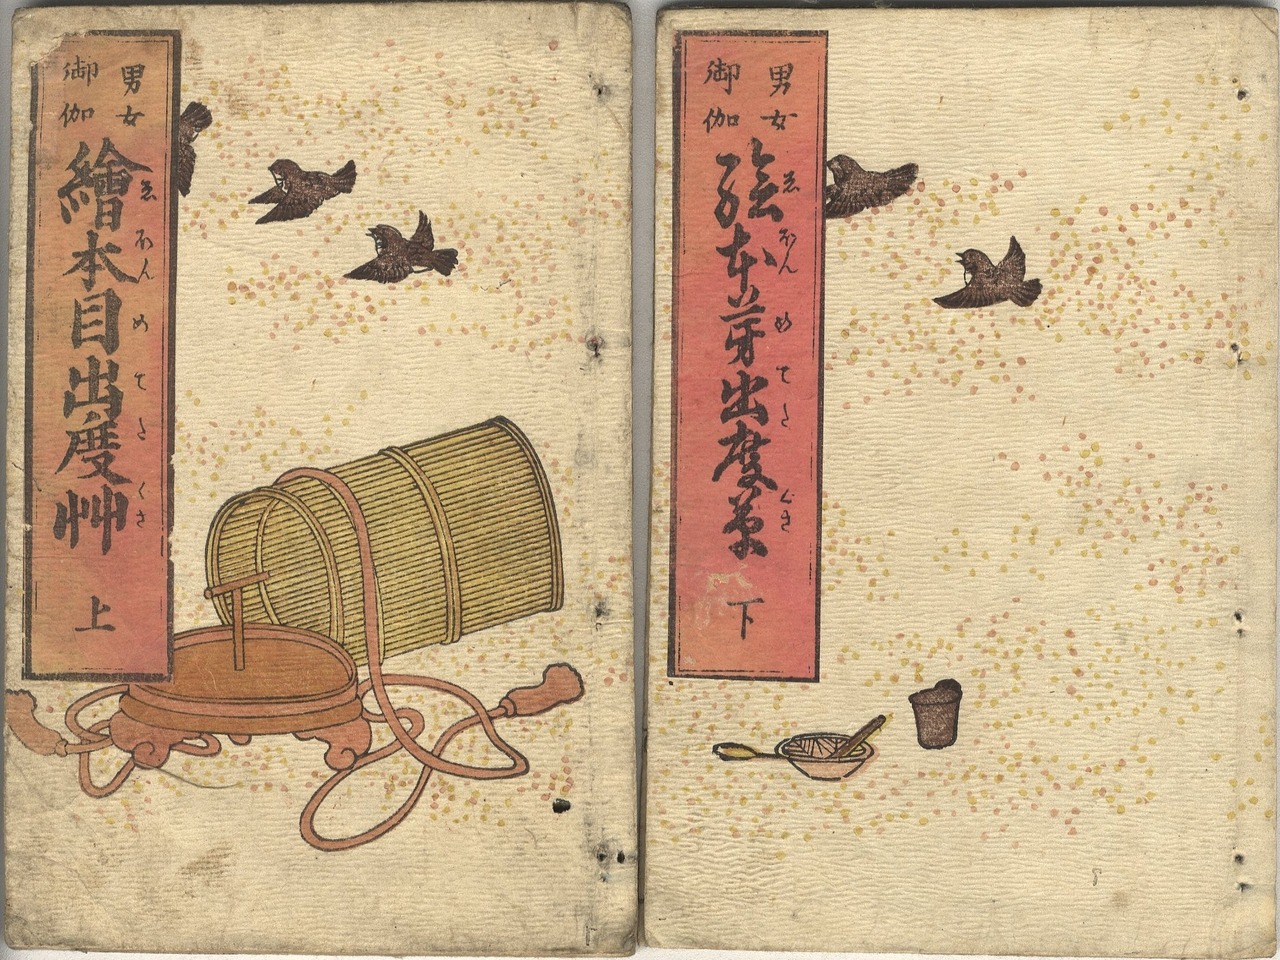 男女
御伽
繪本目出度艸
ゑほんめてたくさ
上
男女
御伽
絵本芽出度草
ゑほんめてたぐさ
下